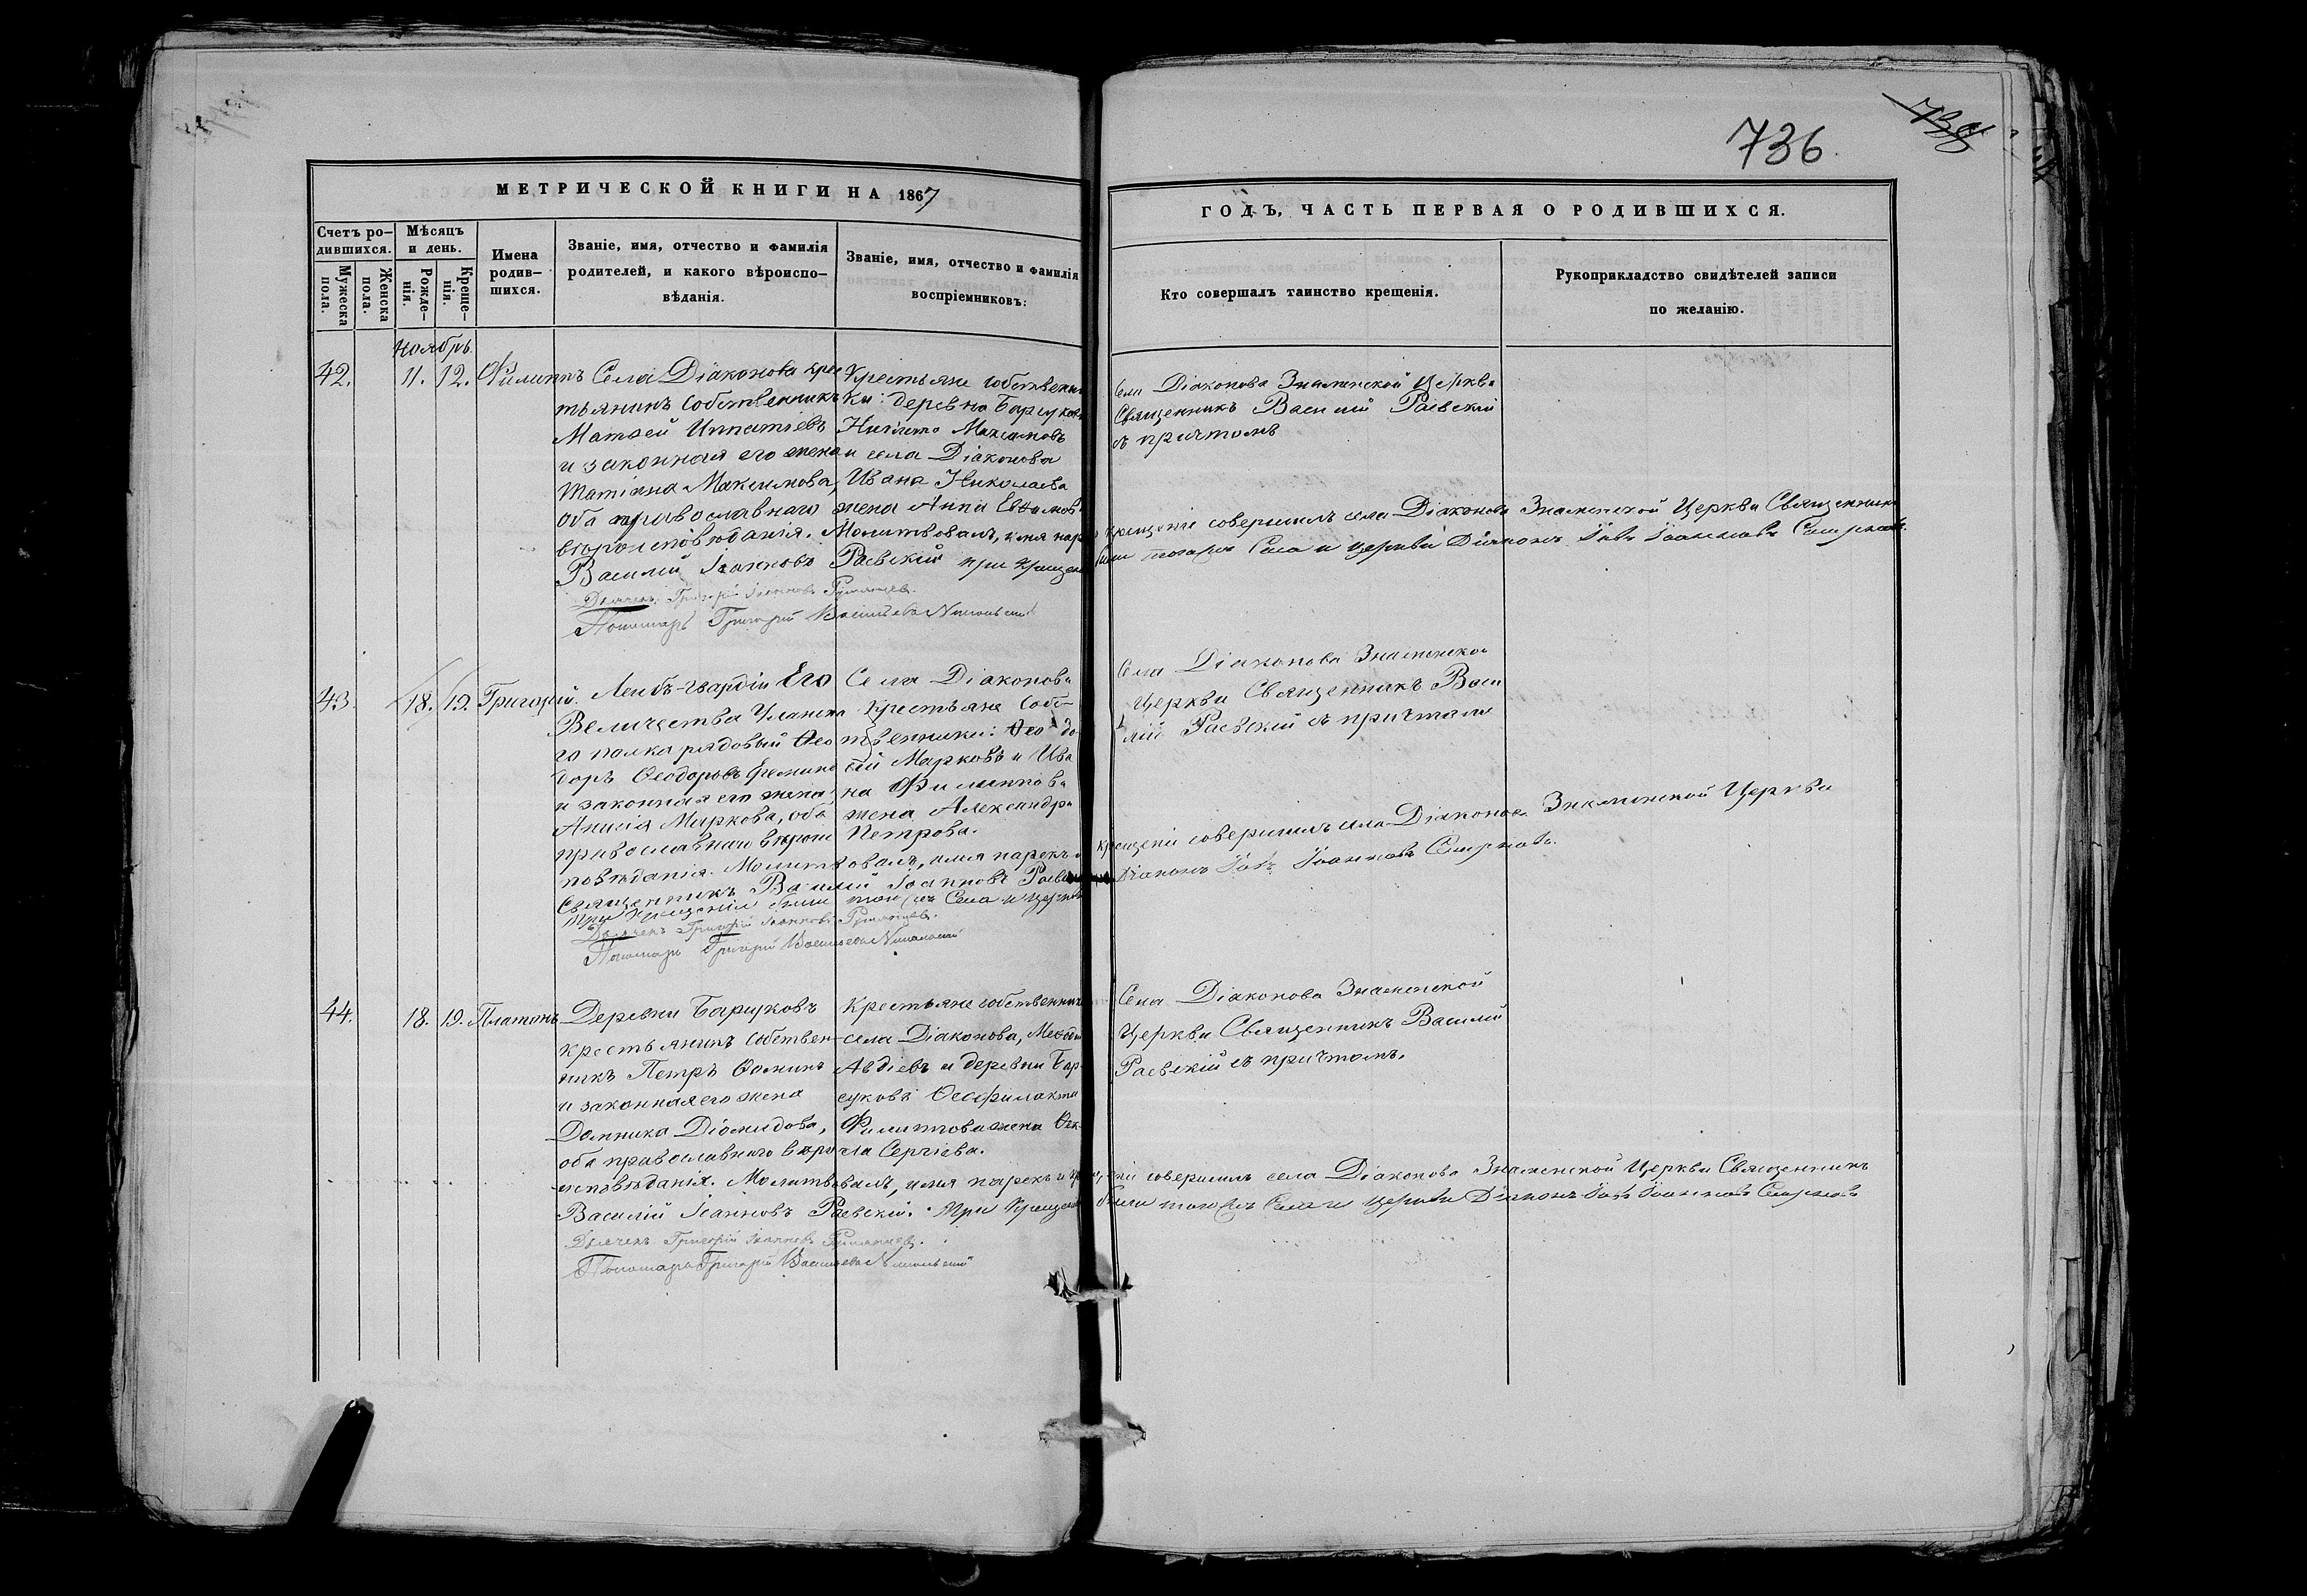 736
МЕТРИЧЕСКОЙ КНИГИ НА 1867
ГОДЪ, ЧАСТЬ ПЕРВАЯ О РОДИВШИХСЯ.
Счетъ ро-
дившихся.
Мужеска
пола.
Женска
пола.
Мѣсяцъ
и день.
Рожде-
нія.
Креще-
нія.
Имена
родив-
шихся.
Званіе, имя, отчество и фамилія
родителей, и какого вѣроиспо-
вѣданія.
Званіе, имя, отчество и фамилія
воспріемниковъ:
Кто совершалъ таинство крещенія.
Рукоприкладство свидѣтелей записи
по желанію.
Ноябрь
42.
11.
12.
Филиппъ
Села Діаконова крес
тьянинъ собственникъ
Матѳей Ипатіевъ
и законная его жена
Татіана Максимова,
оба православнаго
вѣроисповѣданія. Молитвовалъ, имя наре
Василій Іоанновъ Раевскій при крещен
Дьячекъ Григорій Іоанновъ Румянцев.
Пономарь Григорій Васильевъ Никольскій
Крестьяне собственни
ки: деревни Барсуковъ
Никита Максимовъ
и села Діаконова
Ивана Николаева
жена Анна Евѳимов
Села Діаконова Знаменской Церкви
Священникъ Василій Раевскій
съ причтомъ
крещеніе совершилъ села Діаконова Знаменской Церкви Священникъ
были тогожъ Села и церкви Діаконъ Іовъ Іоанновъ Смирновъ.
43.
18.
19.
Григорій.
Лейбъ-гвардіи Его
Величества Уланска
го полка рядовый Ѳео
доръ Ѳеодоровъ Еремин
и законная его жена
Анисія Маркова, оба
православнаго вѣроис
повѣданія. Молитвовалъ, имя нарекъ и
Священникъ Василій Іоанновъ Раевскій
При крещеніи были тогожъ Села и церкви
Дьячекъ Григорій Іоанновъ Румянцев.
Пономарь Григорій Васильевъ Никольскій
Села Діаконова
Крестьяне Собс-
твенники: Ѳеодо
сій Марковъ и Ива
на Филиппова
жена Александра
Петрова.
Села Діаконова Знаменской
Церкви Священникъ Васи
лій Раевскій съ причтомъ
крещеніе совершилъ села Діаконова Знаменской Церкви
Діаконъ Іовъ Іоанновъ Смирновъ.
44.
18.
19.
Платонъ
Деревни Барсуковъ
крестьянинъ собствен-
никъ Петръ Ѳоминъ
и законная его жена
Домника Діомидова,
оба православнаго вѣро
исповѣданія. Молитвовалъ, имя нарекъ и кре
Василій Іоанновъ Раевскій. При крещен
Дьячекъ Григорій Іоанновъ Румянцев.
Пономарь Григорій Васильевъ Никольскій
Крестьяне собственники
села Діаконова, Меѳоді
Авдіевъ и деревни Бар-
суковъ Ѳеофилакта
Филиппова жена Ѳек-
ла Сергіева.
Села Діаконова Знаменской
Церкви Священникъ Василій
Раевскій съ причтомъ.
щеніе совершилъ села Діаконова Знаменской Церкви Священникъ
были тогожъ Села и церкви Діаконъ Іовъ Іоанновъ Смирновъ